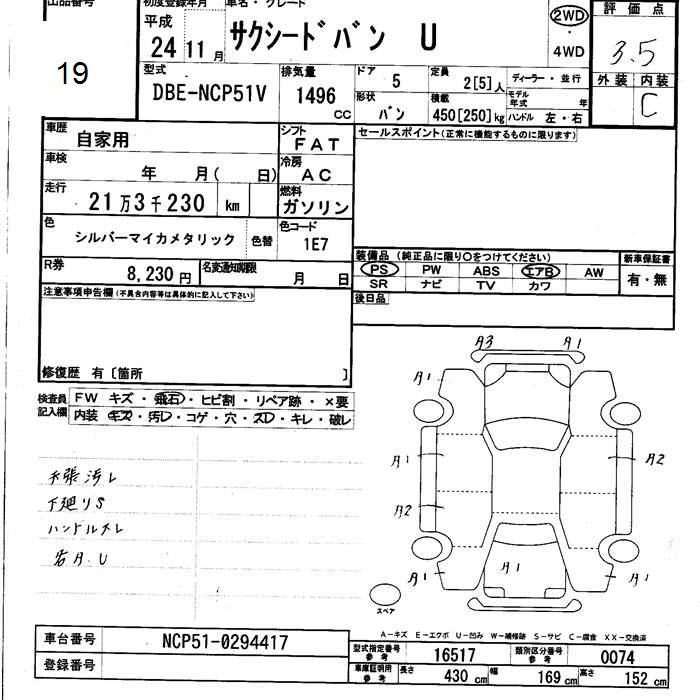 出品番号 初度登録年月 車名・グレード 評価点
19 平成 24 11月 サクシードバン U 2WD ・ 4WD 3.5
外装 内装 C
型式 DBE-NCP51V 排気量 1496 CC ドア 5 定員 2[5]人 ディーラー・並行
形状 バン 積載 450[250]kg モデル年式 年 ハンドル 左・右
車歴 自家用 シフト FAT セールスポイント(正常に機能するものに限ります)
車検 年 月( 日) 冷房 AC
走行 21万3千230 km 燃料 ガソリン
色 シルバーマイカメタリック 色替 色コード 1E7
装備品 (純正品に限り○をつけてください) 新車保証書
PS PW ABS エアB AW 有・無
SR ナビ TV カワ
R券 8,230円 名変通知期限 月 日
後日品
注意事項申告欄(不具合内容等は具体的に記入して下さい)
修復歴 有〔箇所 〕
検査員記入欄 FW キズ・飛石・ヒビ割・リペア跡・×要
内装 キズ・汚レ・コゲ・穴・スレ・キレ・破レ
A3 A1
A1
A1 A2
A2
A1 A1 A1
天張汚レ
下廻りS
ハンドルスレ
若A.U
スペア
A-キズ E-エクボ U-凹み W-補修跡 S-サビ C-腐食 XX-交換済
車台番号 NCP51-0294417 型式指定番号 参考 16517 類別区分番号 参考 0074
登録番号 車庫証明用 参考 長さ 430cm 幅 169cm 高さ 152cm